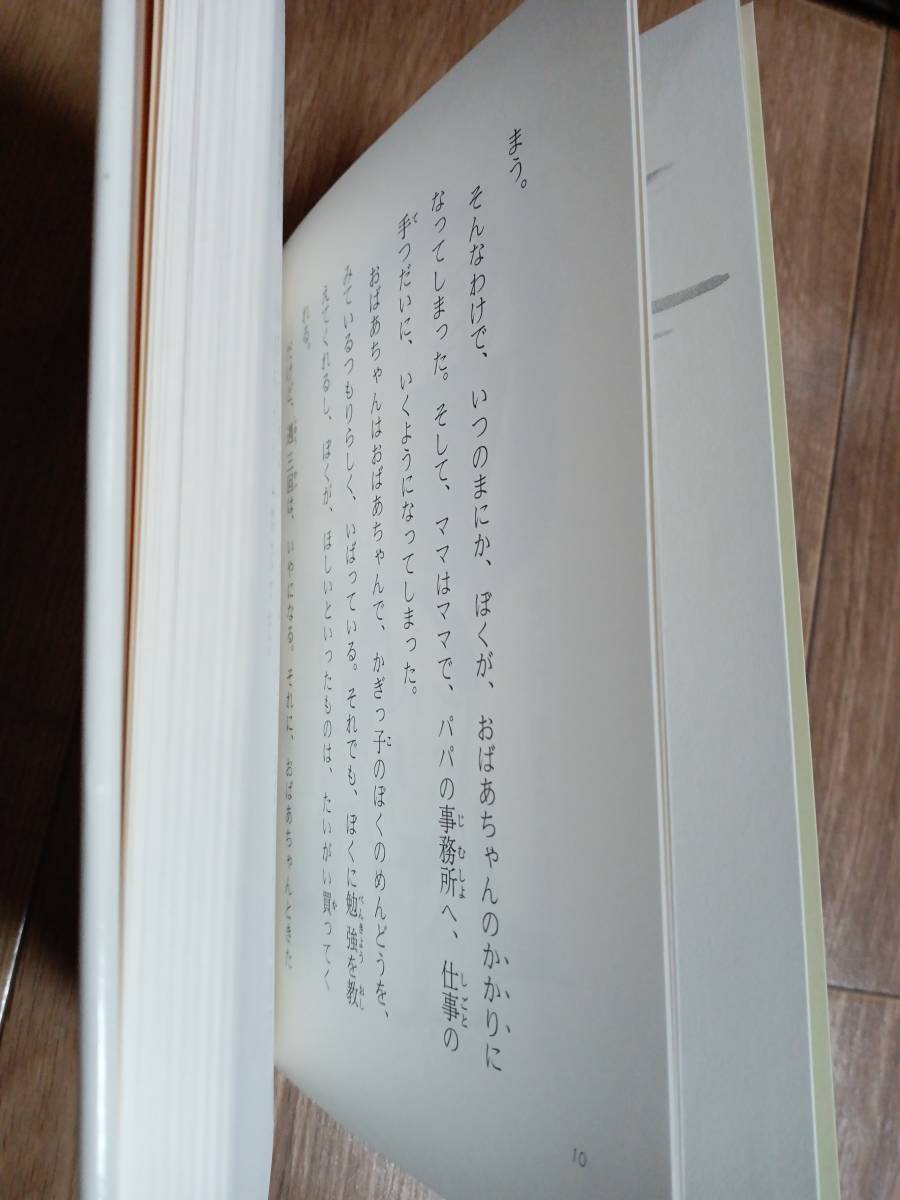 まう。
そんなわけで、いつのまにか、ぼくが、おばあちゃんのかかりに
なってしまった。そして、ママはママで、パパの事務所へ、仕事の
手つだいに、いくようになってしまった。
おばあちゃんはおばあちゃんで、かぎっ子のぼくのめんどうを、
みているつもりらしく、いばっている。それでも、ぼくに勉強を教
えてくれるし、ぼくが、ほしいといったものは、たいがい買ってく
れる。
だけど、週三回は、いやになる。それに、おばあちゃんときた
10